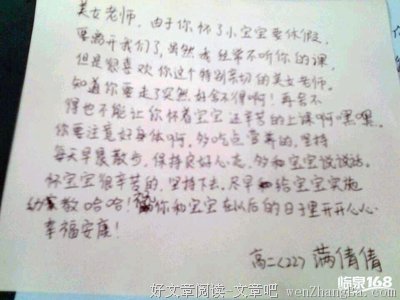 美女老师，由于你怀了小宝宝要休假，
要离开我们了，虽然我经常不听你的课，
但是很喜欢你这个特别亲切的美女老师。
知道你要走了突然好舍不得啊！再舍不
得也不能让你怀着宝宝还辛苦的上课啊嘿嘿。
你要注意好身体啊，多吃点营养的，坚持
每天早晨散步，保持良好心态，多和宝宝说说话。
怀宝宝很辛苦的，坚持下去，尽早给宝宝实施
幼教哈哈！祝你和宝宝在以后的日子里开开心心
幸福安康！
高二〈22〉满倩倩
临泉168
好文章阅读-文章吧 wenZhangBa.com